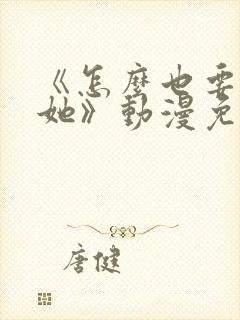 《怎麼也要
她》動漫免
唐健